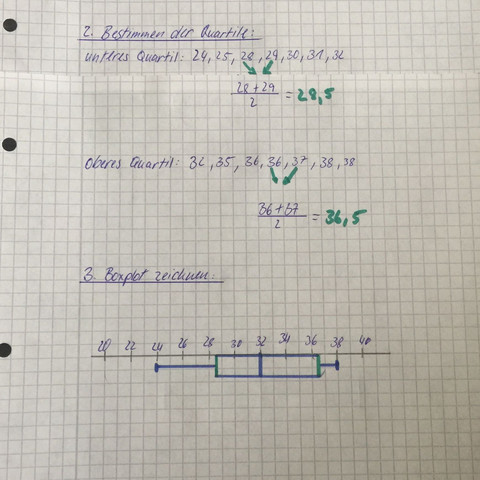 2. Bestimmen der Quartile:
unteres Quartil: 24, 25, 28, 29, 30, 31, 32
28 + 29
2
= 28,5
oberes Quartil: 32, 35, 36, 36, 37, 38, 38
36 + 37
2
= 36,5
3. Boxplot zeichnen:
20 22 24 26 28 30 32 34 36 38 40